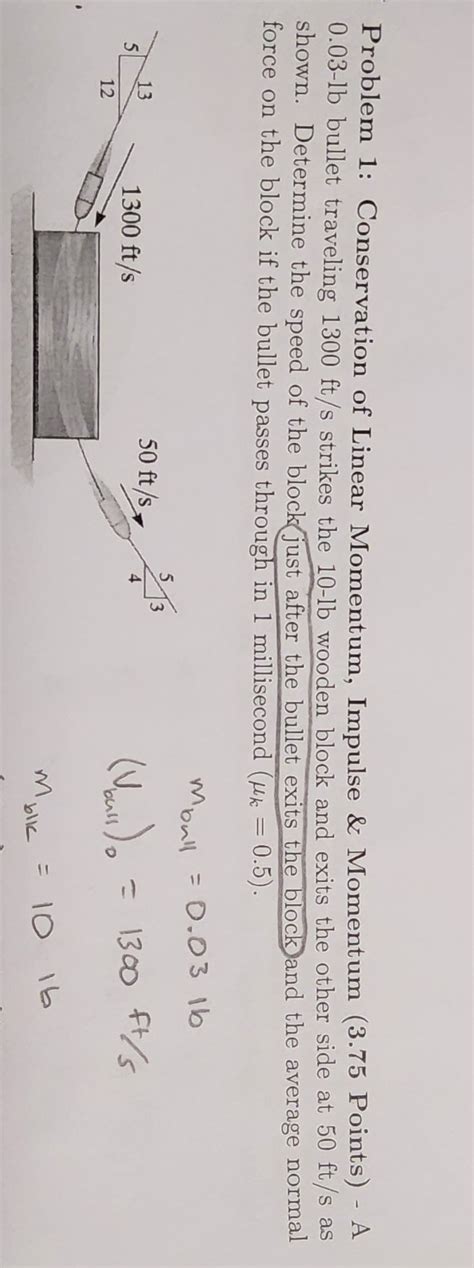 Problem 1: Conservation of Linear Momentum, Impulse & Momentum (3.75 Points) - A
0.03-lb bullet traveling 1300 ft/s strikes the 10-lb wooden block and exits the other side at 50 ft/s as
shown. Determine the speed of the block just after the bullet exits the block and the average normal
force on the block if the bullet passes through in 1 millisecond (μk = 0.5).
13
5
12
1300 ft/s
50 ft/s
5
3
4
mbull = 0.03 lb
(Vbull)o = 1300 ft/s
mblk = 10 lb